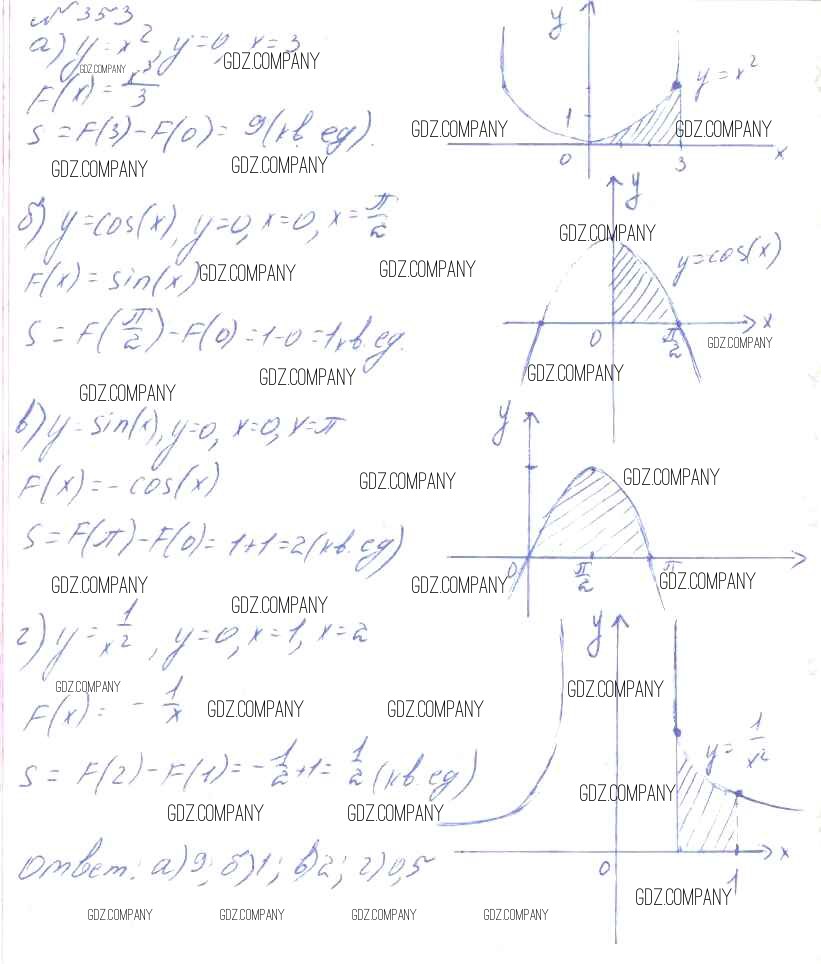 № 353
а) y = x², y = 0, x = 3
GDZ.COMPANY GDZ.COMPANY
F(x) = x³/3
S = F(3) - F(0) = 9 (кв. ед).
GDZ.COMPANY GDZ.COMPANY
y
y = x²
1
GDZ.COMPANY GDZ.COMPANY
0 3 x
б) y = cos(x), y = 0, x = 0, x = π/2
F(x) = sin(x)
GDZ.COMPANY GDZ.COMPANY
S = F(π/2) - F(0) = 1 - 0 = 1 кв. ед.
GDZ.COMPANY GDZ.COMPANY
y
GDZ.COMPANY
y = cos(x)
0 π/2 x
GDZ.COMPANY GDZ.COMPANY
в) y = sin(x), y = 0, x = 0, x = π
F(x) = - cos(x)
GDZ.COMPANY
S = F(π) - F(0) = 1 + 1 = 2 (кв. ед)
GDZ.COMPANY GDZ.COMPANY GDZ.COMPANY
y
GDZ.COMPANY
0 π/2 π
GDZ.COMPANY
г) y = 1/x², y = 0, x = 1, x = 2
GDZ.COMPANY
F(x) = - 1/x
GDZ.COMPANY GDZ.COMPANY
S = F(2) - F(1) = - 1/2 + 1 = 1/2 (кв. ед)
GDZ.COMPANY GDZ.COMPANY
y
GDZ.COMPANY
y = 1/x²
GDZ.COMPANY
0 1 x
GDZ.COMPANY
Ответ: а) 9; б) 1; в) 2; г) 0,5
GDZ.COMPANY GDZ.COMPANY GDZ.COMPANY GDZ.COMPANY